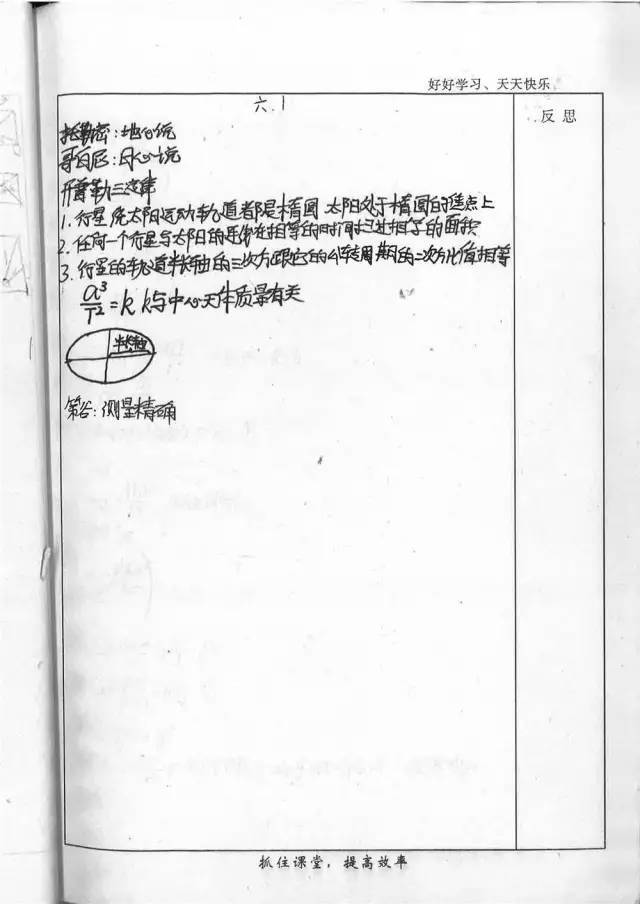 好好学习、天天快乐
六.1
反思
托勒密:地心说
哥白尼:日心说
开普勒三定律
1.行星绕太阳运动轨道都是椭圆 太阳处于椭圆的焦点上
2.任何一个行星与太阳的连线在相等的时间扫过相等的面积
3.行星的轨道半长轴的三次方跟它的公转周期的二次方比值相等
a³/T²=k k与中心天体质量有关
半长轴
第谷:测量精确
抓住课堂，提高效率